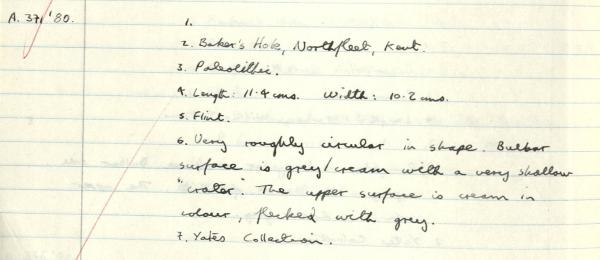 A. 371 '80.
1.
2. Baker's Hole, Northfleet, Kent.
3. Paleolithic.
4. Length: 11.4 cms. Width: 10.2 cms.
5. Flint.
6. Very roughly circular in shape. Bulbar
surface is grey/cream with a very shallow
"crater". The upper surface is cream in
colour, flecked with grey.
7. Yates Collection.